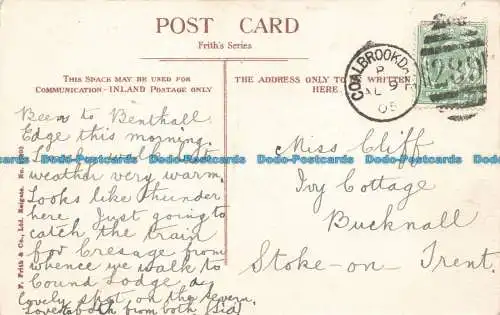 POST CARD
Frith's Series
THIS SPACE MAY BE USED FOR
COMMUNICATION - INLAND POSTAGE ONLY
THE ADDRESS ONLY TO BE WRITTEN
HERE.
COALBROOKDALE
9
05
Been to Benthall
Edge this morning.
weather very warm.
Looks like thunder
here. Just going to
catch the train
for Cresage from
whence we walk to
Cound Lodge a
lovely spot on the Severn.
Love to both from both
Miss Cliff
Ivy Cottage
Bucknall
Stoke-on-Trent.
F. Frith & Co., Ltd. Reigate. No.
Dodo-Postcards Dodo-Postcards Dodo-Postcards Dodo-Postcards